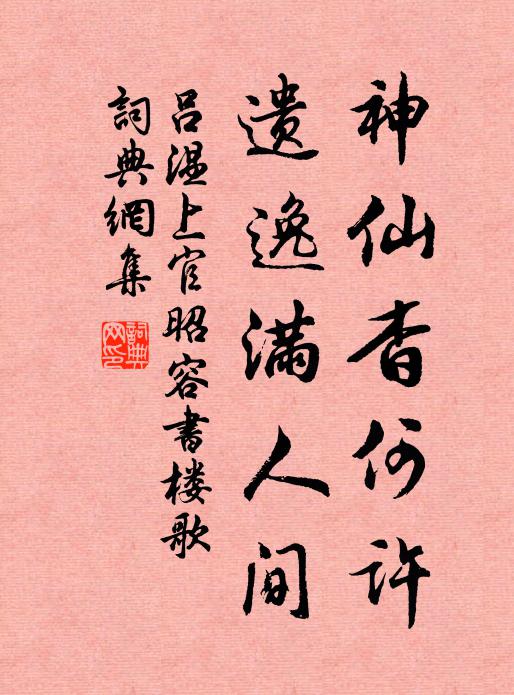 神仙杳何许
遗逸满人间
吕温上官昭容书楼歌
词典網集
詞典网印